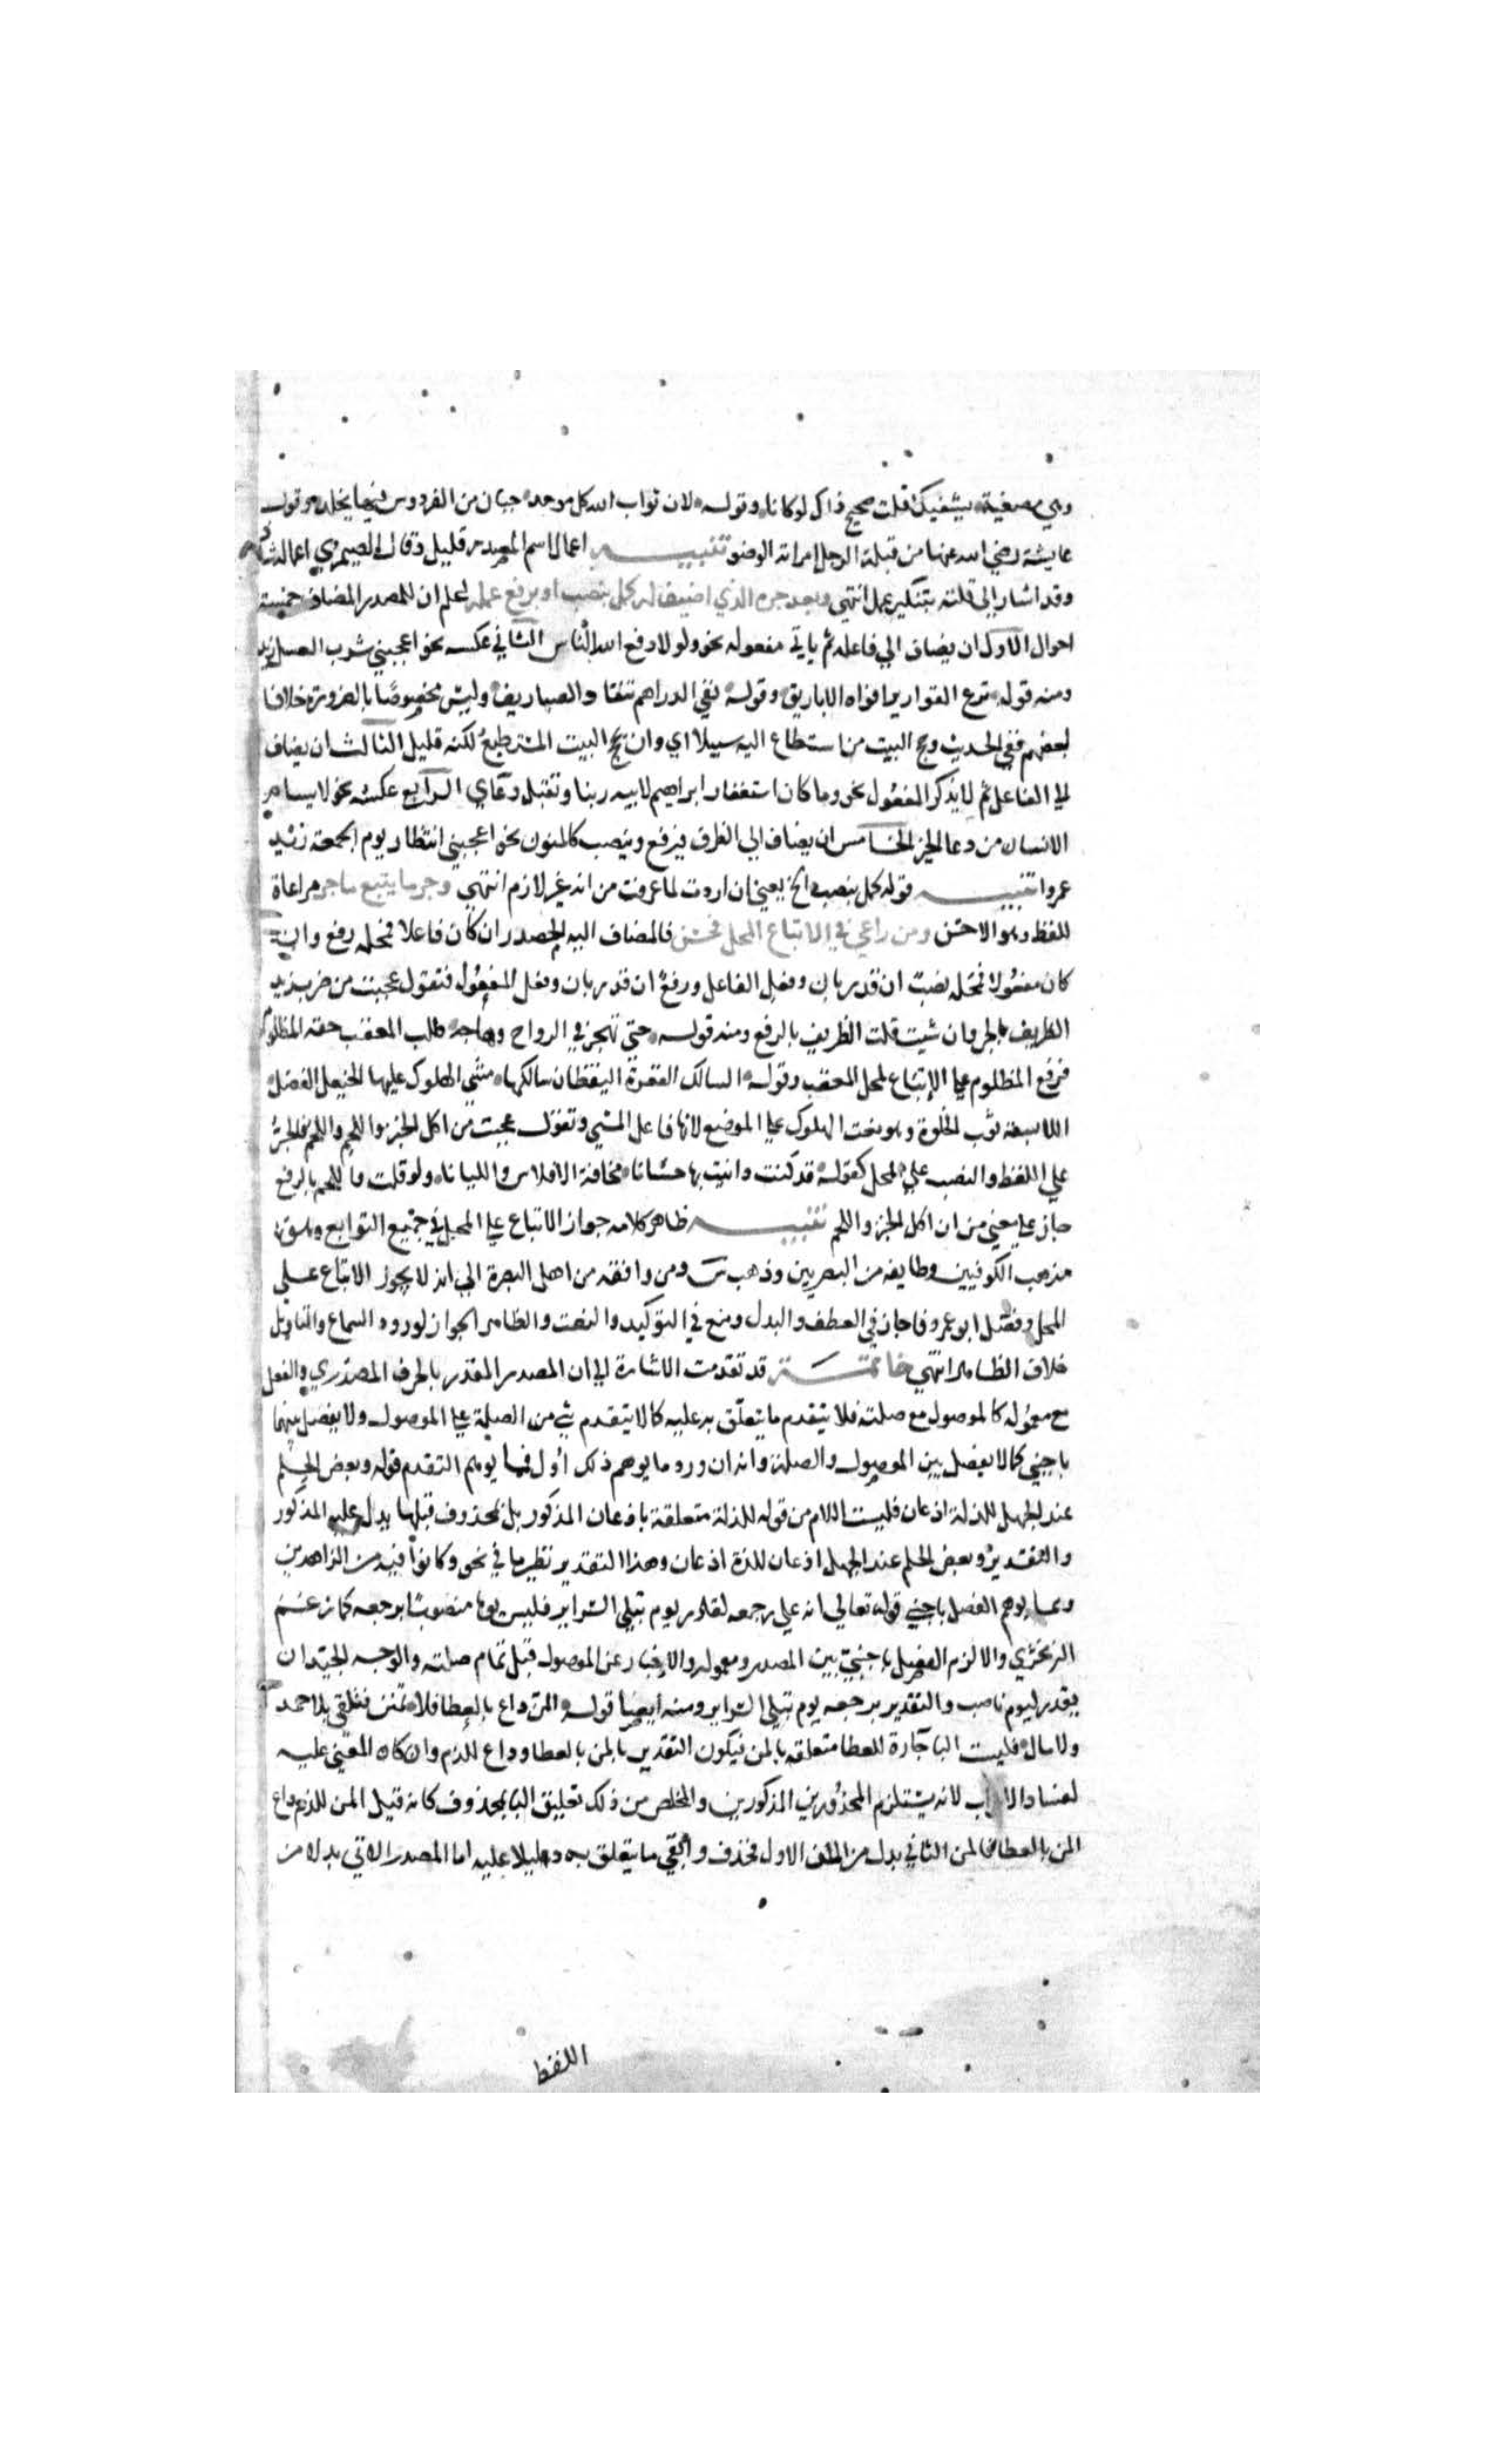 وهي مصغية يشفيك قلت صحيح ذاك لو كانا وقوله لان ثواب الله كل موحد جنان من الفردوس فيها يخلد وقول
عايشة رضي الله عنها من قبلة الرجل امراته الوضو تنبيه اعمال اسم المصدر قليل وقال الصيمري اعماله شاذ
وقد اشار الي قلته بتنكير عمل انتهي وبعد جره الذي اضيف له كمل بنصب او برفع عمله اعلم ان للمصدر المضاف خمسة
احوال الاول ان يضاف الي فاعله ثم ياتي مفعوله نحو ولولا دفع الله الناس الثاني عكسه نحو اعجبني شرب العسل زيد
ومنه قوله قرع القوارير افواه الاباريق وقوله نفي الدراهم تنقاد الصياريف وليس مخصوصا بالضرورة خلافا
لبعضهم ففي الحديث وحج البيت من استطاع اليه سبيلا اي وان يحج البيت المستطيع لكنه قليل الثالث ان يضاف
الي الفاعل ثم لا يذكر المفعول نحو وما كان استغفار ابراهيم لابيه ربنا وتقبل دعاي الرابع عكسه نحو لا يسام
الانسان من دعا الخير الخامس ان يضاف الي الظرف فيرفع وينصب كالمنون نحو اعجبني انتظار يوم الجمعة زيد
عمروا تنبيه قوله كمل بنصب الخ يعني ان اردت لما عرفت من انه غير لازم انتهي وجر ما يتبع ما جر مراعاة
للفظ وهو الاحسن ومن راعي في الاتباع المحل فحسن فالمضاف اليه المصدر ان كان فاعلا فمحله رفع وان
كان مفعولا فمحله نصب ان قدر بان وفعل الفاعل ورفع ان قدر بان وفعل المفعول فتقول عجبت من ضرب زيد
الظريف بالجر وان شيت قلت الظريف بالرفع ومنه قوله حتي تهجر في الرواح وهاجه طلب المعقب حقه المظلوم
فرفع المظلوم علي الاتباع لمحل المعقب وقوله السالك الثغرة اليقظان سالكها مشي الهلوك عليها الخيعل الفضل
اللابسة ثوب الخلوة وهو نعت الهلوك علي الموضع لانها فاعل المشي وتقول عجبت من اكل الخبز واللحم واللحم فالجر
علي اللفظ والنصب علي المحل كقوله قد كنت داينت بها حسانا مخافة الافلاس والليانا ولو قلت واللحم بالرفع
جاز علي معني من ان اكل الخبز واللحم تنبيه ظاهر كلامه جواز الاتباع علي المحل في جميع التوابع وهو
مذهب الكوفيين وطايفة من البصريين وذهب س ومن وافقه من اهل البصرة الي انه لا يجوز الاتباع علي
المحل وفصل ابو عمرو فاجاز في العطف والبدل ومنع في التوكيد والنعت والظاهر الجواز لورود السماع والتاويل
خلاف الظاهر انتهي خاتمة قد تقدمت الاشارة الي ان المصدر المقدر بالحرف المصدري والفعل
مع معموله كالموصول مع صلته فلا يتقدم ما يتعلق به عليه كما لا يتقدم شي من الصلة علي الموصول ولا يفصل بينهما
باجنبي كما لا يفصل بين الموصول والصلة وانه ان ورد ما يوهم ذلك اول فمما يوهم التقدم قوله وبعض الحلم
عند الجهل للذلة اذعان فليست اللام من قوله للذلة متعلقة باذعان المذكور بل بمحذوف قبلها يدل عليه المذكور
والتقدير وبعض الحلم عند الجهل اذعان للذلة اذعان وهذا التقدير نظير ما في نحو وكانوا فيه من الزاهدين
ومما يوهم الفصل باجنبي قوله تعالي انه علي رجعه لقادر يوم تبلي السراير فليس يوم منصوبا برجعه كما زعم
الزمخشري والا لزم الفصل باجنبي بين المصدر ومعموله والاخبار عن الموصول قبل تمام صلته والوجه الجيد ان
يقدر ليوم ناصب والتقدير يرجعه يوم تبلي السراير ومنه ايضا قوله المن داع بالعطا فلا تمنن فتلقي بلا حمد
ولا مال فليست البا الجارة للعطا متعلقه بالمن فيكون التقدير بالمن بالعطا وداع للذم وان كان المعني عليه
لفساد الاعراب لانه يستلزم المحذورين المذكورين والمخلص من ذلك تعليق البا بمحذوف كانه قيل المن للذم داع
المن بالعطا فالمن الثاني بدل من المن الاول فحذف وابقي ما يتعلق به دليلا عليه اما المصدر الاتي بدلا من
اللفظ